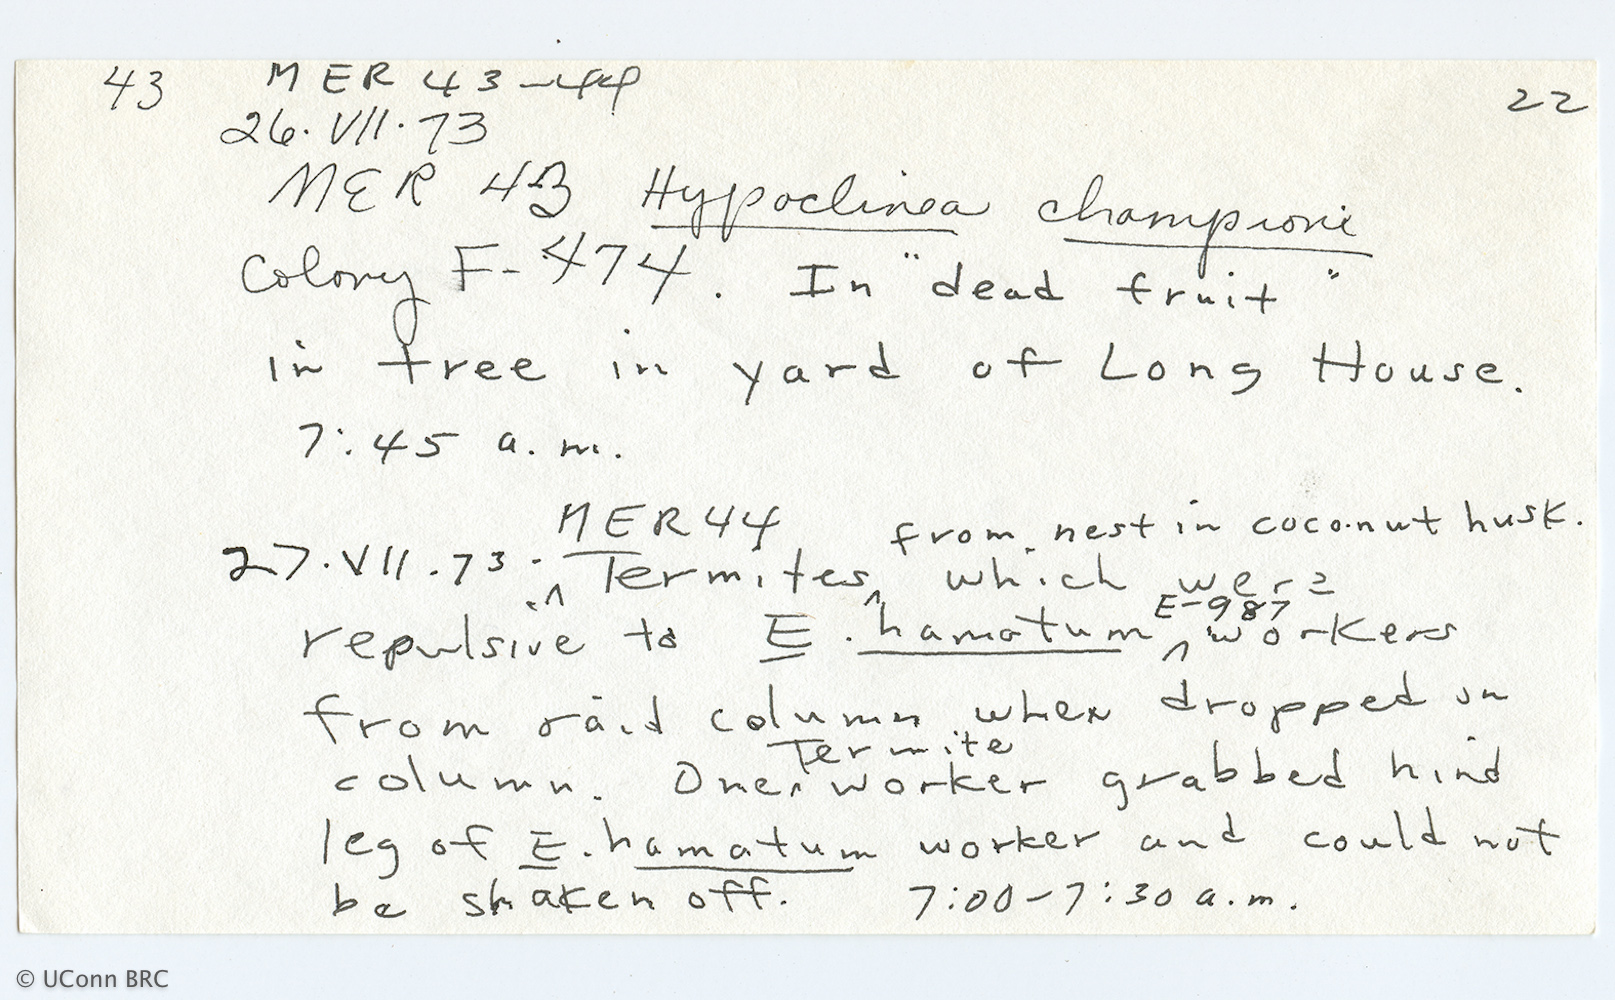 43 MER 43-44 22
26.VII.73
MER 43 Hypoclinea championi
Colony F-474. In "dead fruit"
in tree in yard of Long House.
7:45 a.m.
MER 44 from nest in coconut husk.
27.VII.73. ^ Termites ^ which were
E-987
repulsive to E. hamatum ^ workers
from raid column when dropped in
Termite
column. One ^ worker grabbed hind
leg of E. hamatum worker and could not
be shaken off. 7:00-7:30 a.m.
© UConn BRC